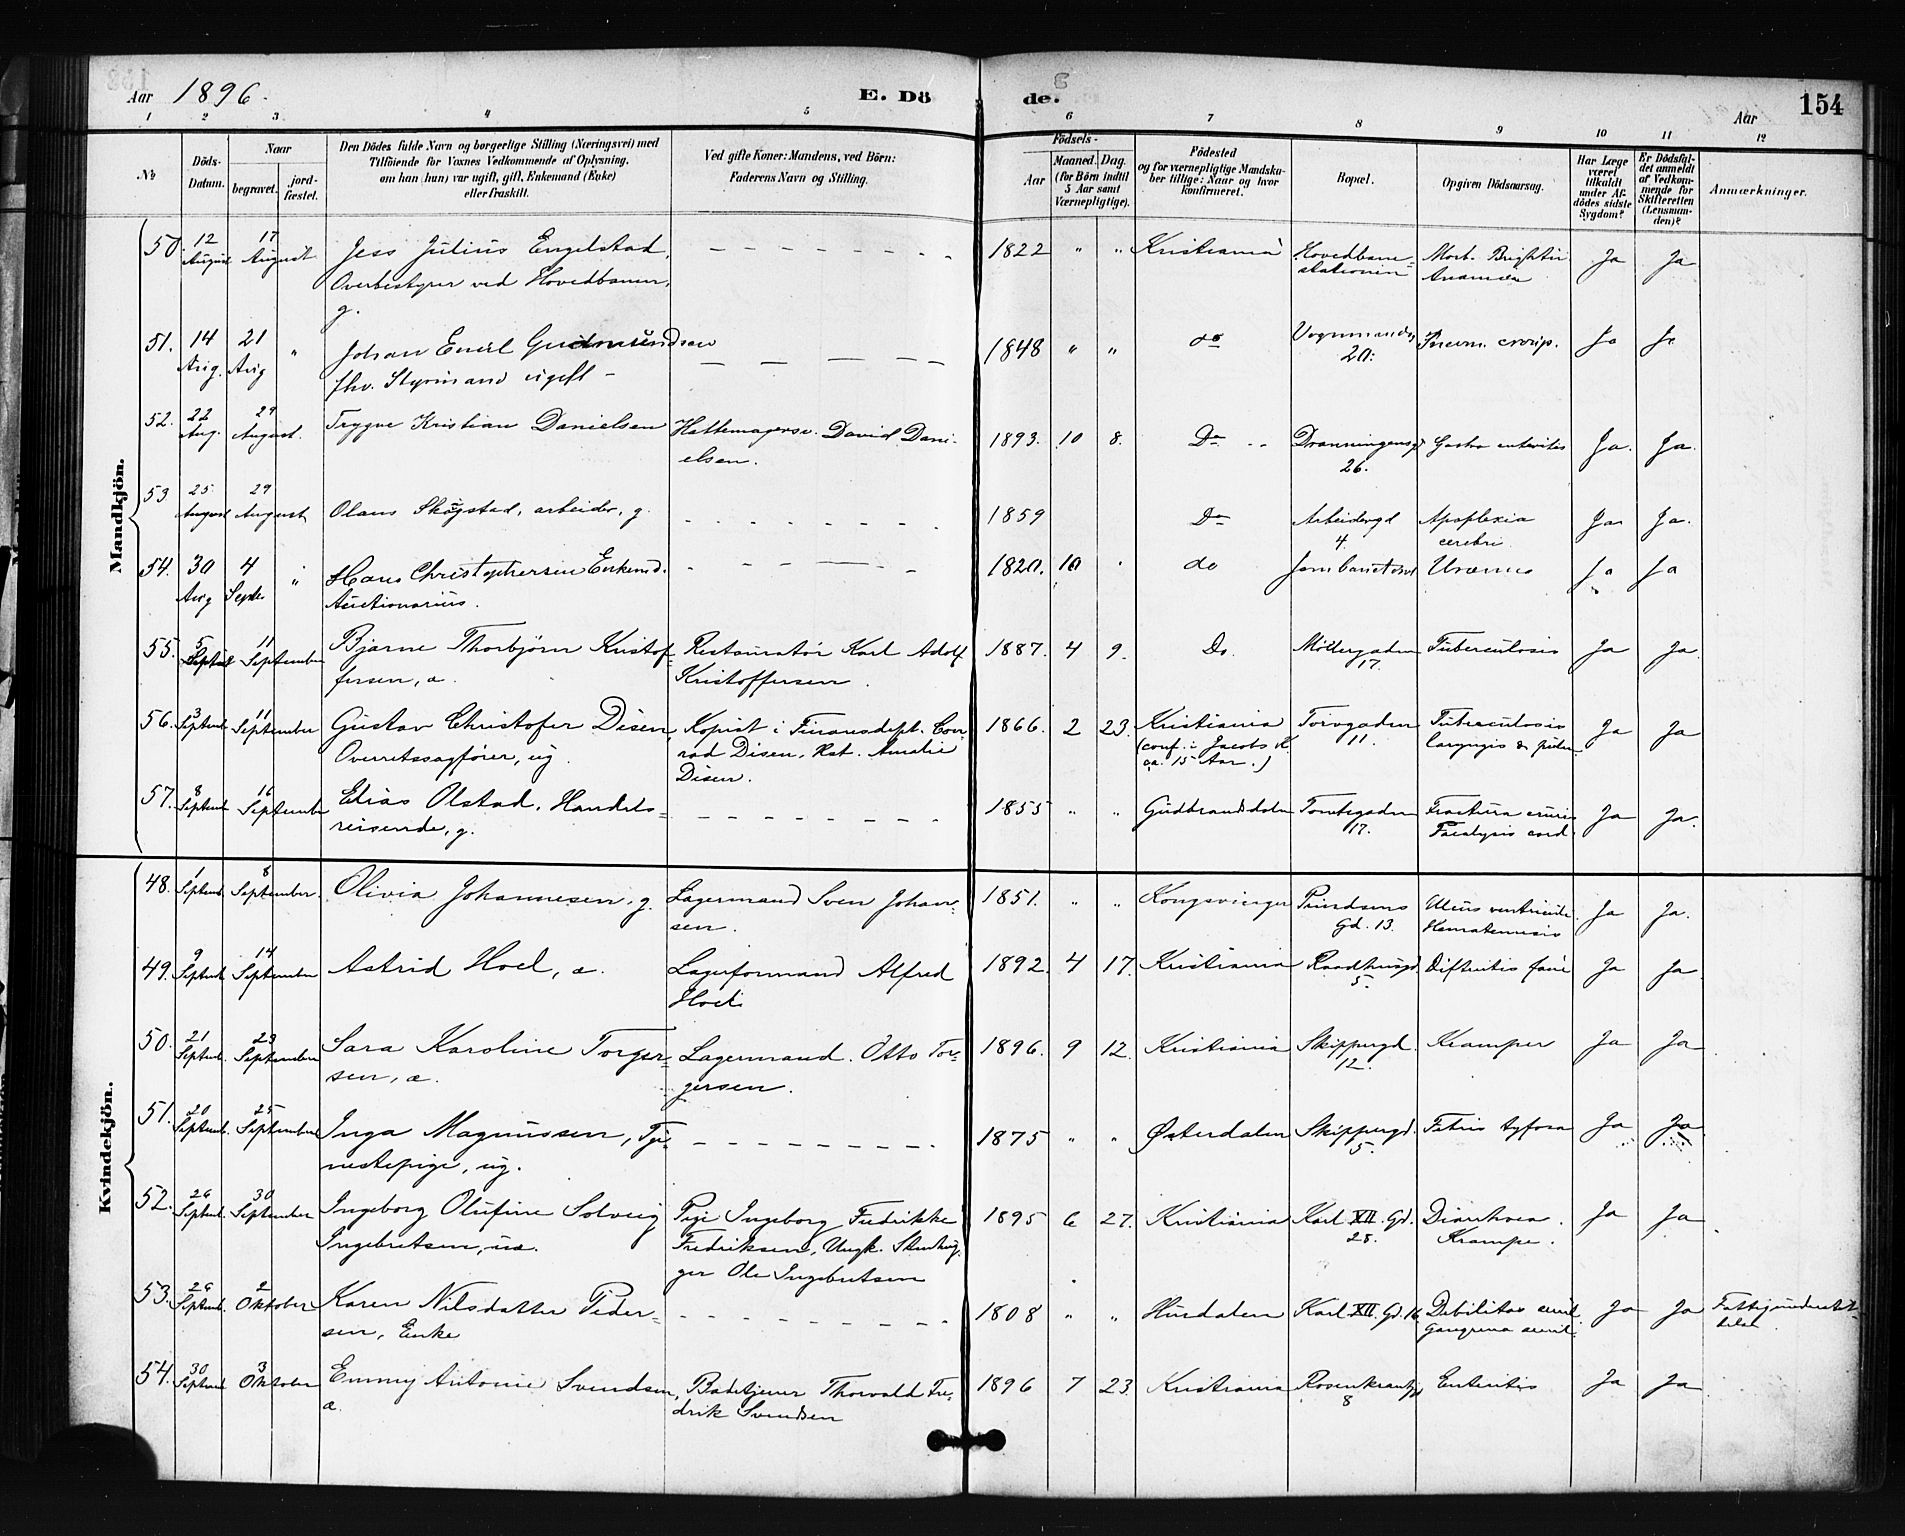 Aar 1896.
E. Dö de.
Aar
154
1 2 3 4 5 6 7 8 9 10 11 12
No
Döds-Datum.
Naar
begravet.
jord-fæstet.
Den Dödes fulde Navn og borgerlige Stilling (Næringsvei) med
Tilföiende for Voxnes Vedkommende af Oplysning,
om han (hun) var ugift, gift, Enkemand (Enke)
eller fraskilt.
Ved gifte Koner: Mandens, ved Börn:
Faderens Navn og Stilling.
Födsels-
Aar
Maaned. Dag.
(for Börn indtil
5 Aar samt
Værnepligtige).
Födested
og for værnepligtige Mandska-
ber tillige: Naar og hvor
konfirmeret.
Bopæl.
Opgiven Dödsaarsag.
Har Læge
været
tilkaldt
under Af-
dödes sidste
Sygdom?
Er Dödsfal-
det anmeldt
af Vedkom-
mende for
Skifteretten
(Lensman-
den)?
Anmærkninger.
Mandkjön.
50. 12 August 17 August Jess Julius Engelstad, 1822 " " Kristiania Hovedbane- Morb. Brightii
Overbestyrer ved Hovedbanen, stationen Anæmia Ja Ja
g.
51. 14 Aug. 21 Aug " Johan Emil Gudmundsen 1848 " " do 20. Pneum. croup. Ja Ja
fhv. Styrmand ugift -
52. 22 Aug. 29 August. Trygve Kristian Danielsen Hattemagersv. David Dani- 1893. 10 8. Do Dronningensgd Gastro enteritis Ja. Ja.
elsen. 26.
53 25 August 29 August Olaus Skøgstad, arbeider, g. 1859 Do Arbeidergd Apoplexia Ja Ja.
4. cerebri.
54. 30 Aug 4 Septbr " Hans Christophersen Enkemd. 1820. 10 " do Uræmia Ja Ja
Auctionarius.
55. 5 Septbr 11 September Bjarne Thorbjørn Kristof- Restauratør Karl Adolf 1887. 4 9. Do. Möllergaden Tuberculosis Ja Ja.
fersen, æ. Kristoffersen. 17.
56. 3 Septemb. 11 September Gustav Christofer Disen, Kopist i Finansdept. Con- 1866. 2 23. Kristiania Torvgaden Tuberculosis Ja Ja
Overretssagfører, ug. rad Disen, Kat. Amalie (conf. i Jacobs K. 11. laryngis & pulm.
Disen. ca. 15 Aar.)
57. 8 Septemb. 16 September Elias Olstad, Handels- 1855 " " Gudbrandsdalen Tomtegaden Fractura cruris Ja Ja.
reisende, g. 17. Paralysis cord.
Kvindekjön.
48. 1 Septemb. 8 September. Olivia Johannesen, g. Lagermand Sven Johan- 1851. " " Kongsvinger Prindsens Ulcus ventriculi Ja Ja.
sen. Gd. 13. Hæmatemesis
49. 9 Septemb. 14 September Astrid Hoel, æ. Lagerformand Alfred 1892. 4 17. Kristiania Raadhusgd. Difteritis fauc. Ja Ja.
Hoel. 5.
50. 21 Septemb. 23 September Sara Karoline Torger- Lagermand Otto Tor- 1896. 9 12. Kristiania Skippergd. Kramper Ja Ja
sen, æ. gersen. 12.
51. 20 Septemb. 25 September Inga Magnussen, Tje- 1875 " " Østerdalen Skippergd. Febris tyfosa Ja Ja.
nestepige, ug. 5.
52. 26 Septemb. 30 September Ingeborg Olufine Solveig Pige Ingeborg Fredrikke 1895 6 27. Kristiania Karl XII. Gd. Diarrhoea. Ja Ja.
Ingebretsen, uæ. Fredriksen, Ungk. Stenhug- 28. Krampe.
ger Ole Ingebretsen
53. 26 Septemb. 2 Oktober Karen Nilsdatter Peder- 1808 " " Hurdalen Karl XII. Gd. 16 Debilitas senil. Ja Ja
sen, Enke Gangræna senil.
54. 30 Septemb. 3 Oktober Emmy Antonie Svendsen, Badetjener Thorvald Fre- 1896 7 23. Kristiania Rosenkrantzgd Enteritis Ja Ja.
æ. drik Svendsen 8